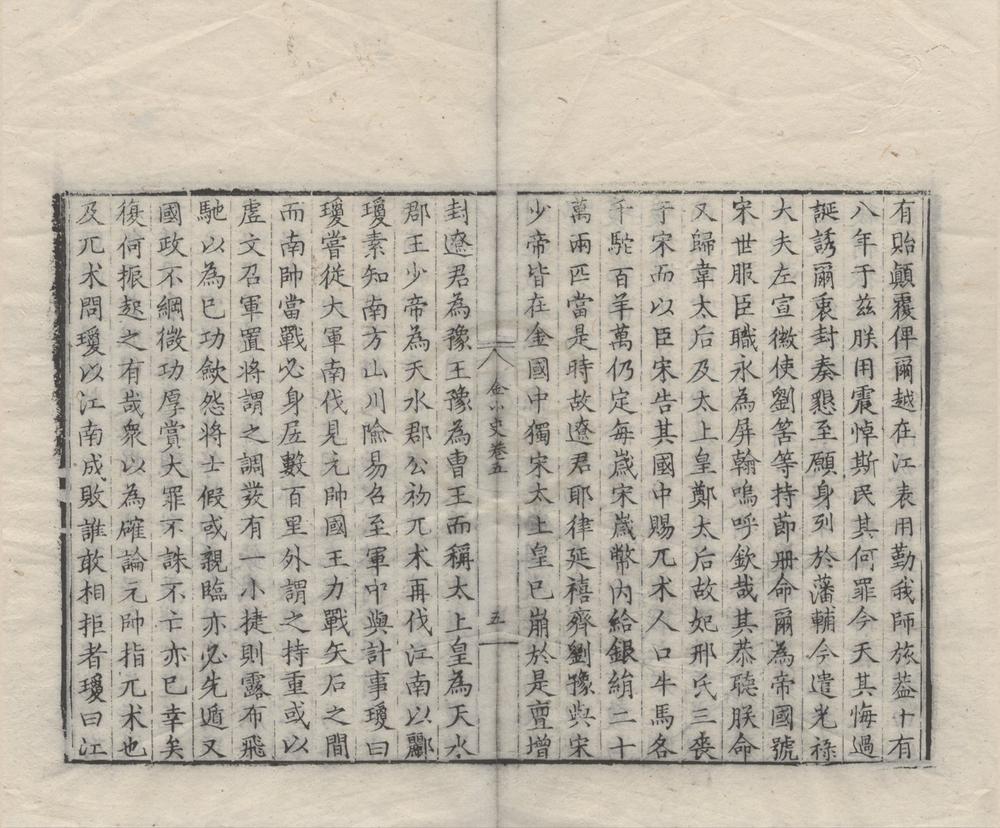 有貽顛覆俾爾越在江表用勤我師旅葢十有
八年于茲朕用震悼斯民其何罪今天其悔過
誕誘爾衷封奏懇至願身列於藩輔今遣光祿
大夫左宣徽使劉筈等持節冊命爾為帝國號
宋世服臣職永為屏翰嗚呼欽哉其恭聽朕命
又歸韋太后及太上皇鄭太后故妃邢氏三喪
于宋而以臣宋告其國中賜兀术人口牛馬各
千駝百羊萬仍定每歲宋歲幣內給銀絹二十
萬兩匹當是時故遼君耶律延禧齊劉豫與宋
少帝皆在金國中獨宋太上皇已崩於是亶增
金小史卷五
五
封遼君為豫王豫為曹王而稱太上皇為天水
郡王少帝為天水郡公初兀术再伐江南以酈
瓊素知南方山川險易召至軍中與計事瓊曰
瓊嘗從大軍南伐見元帥國王力戰矢石之間
而南帥當戰必身居數百里外謂之持重或以
虛文召軍置將謂之調發有一小捷則露布飛
馳以為已功歛怨將士假或親臨亦必先遁又
國政不綱微功厚賞大罪不誅不亡亦已幸矣
復何振起之有哉衆以為確論元帥指兀术也
及兀术問瓊以江南成敗誰敢相拒者瓊曰江